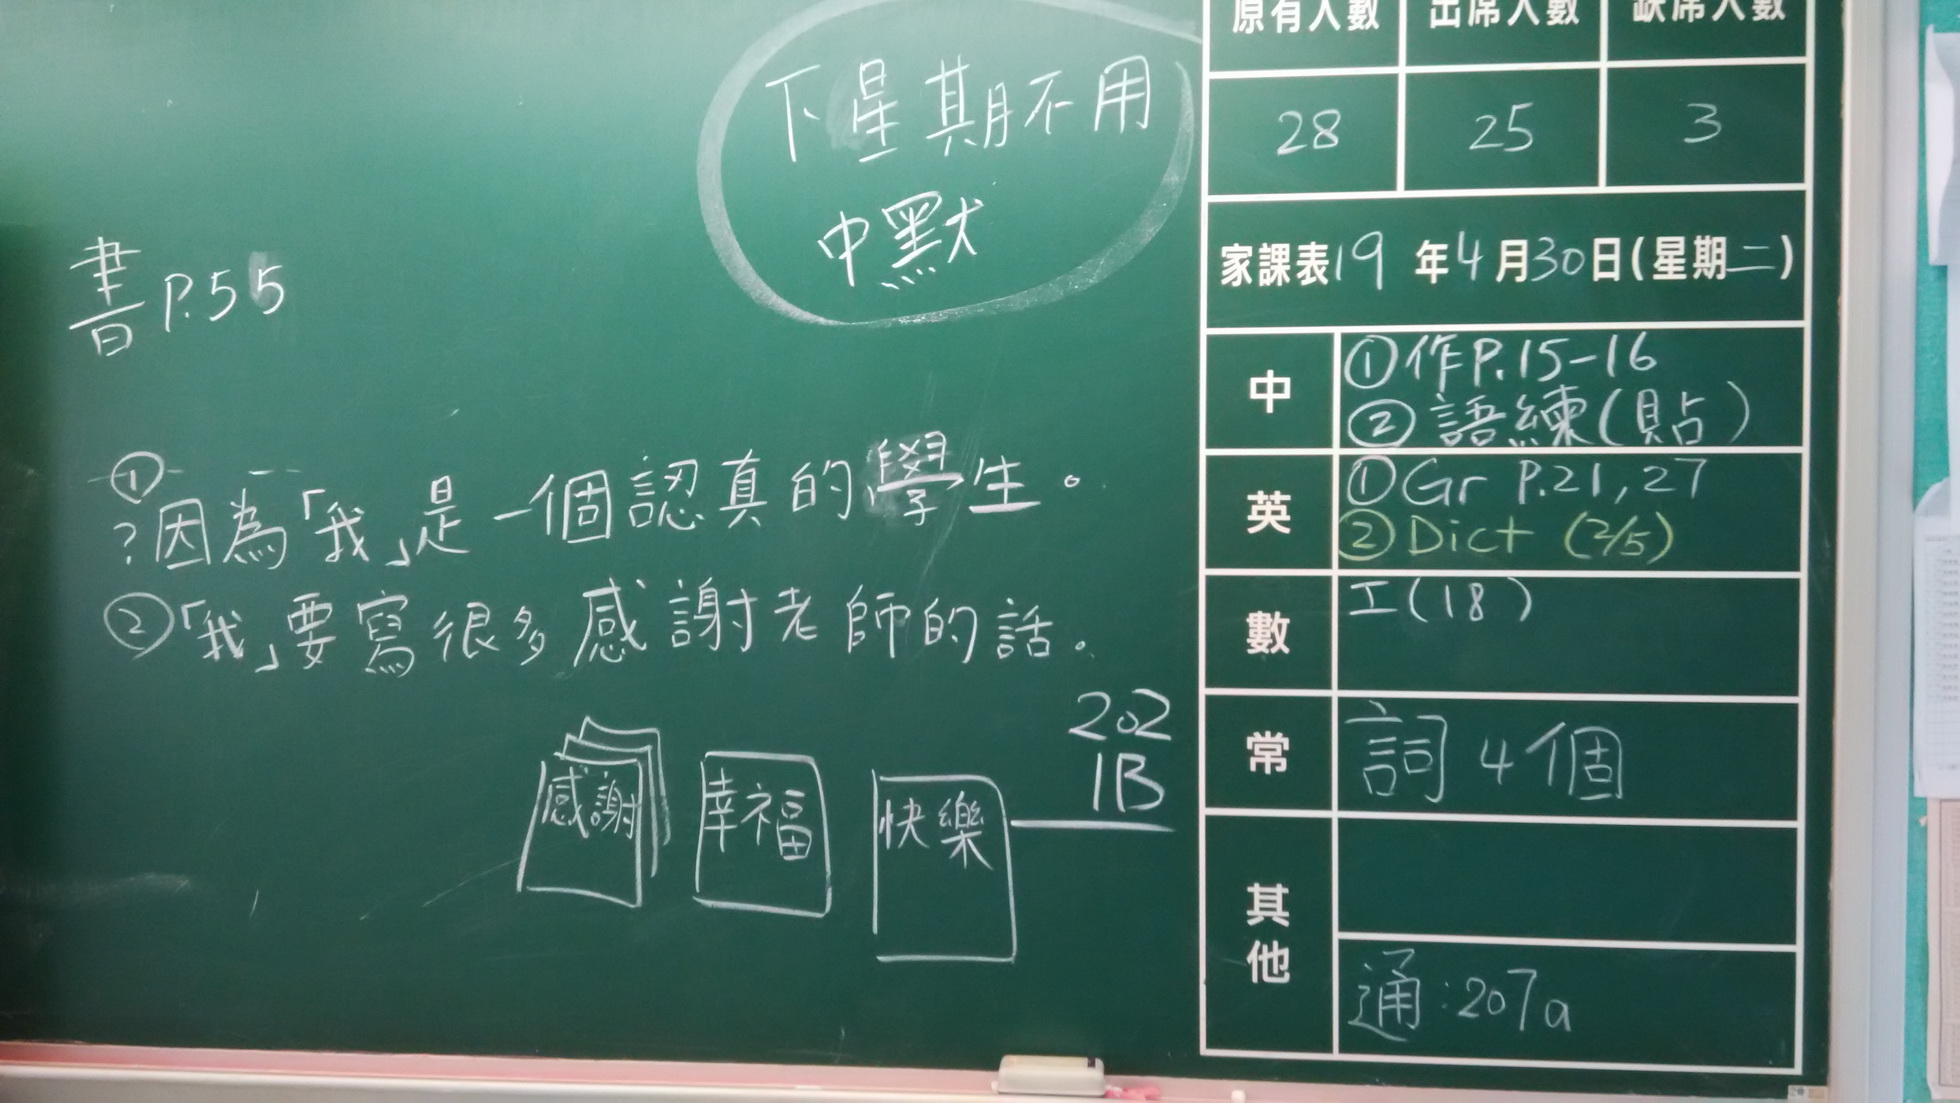 下星期不用
中默
書 P.55
①
?因為「我」是一個認真的學生。
②「我」要寫很多感謝老師的話。
感謝 幸福 快樂
202
1B
原有人數 出席人數 缺席人數
28 25 3
家課表19年4月30日(星期二)
中 ①作P.15-16
②語練(貼)
英 ①Gr P.21,27
②Dict (2/5)
數 工(18)
常 詞4個
其他
通:207a